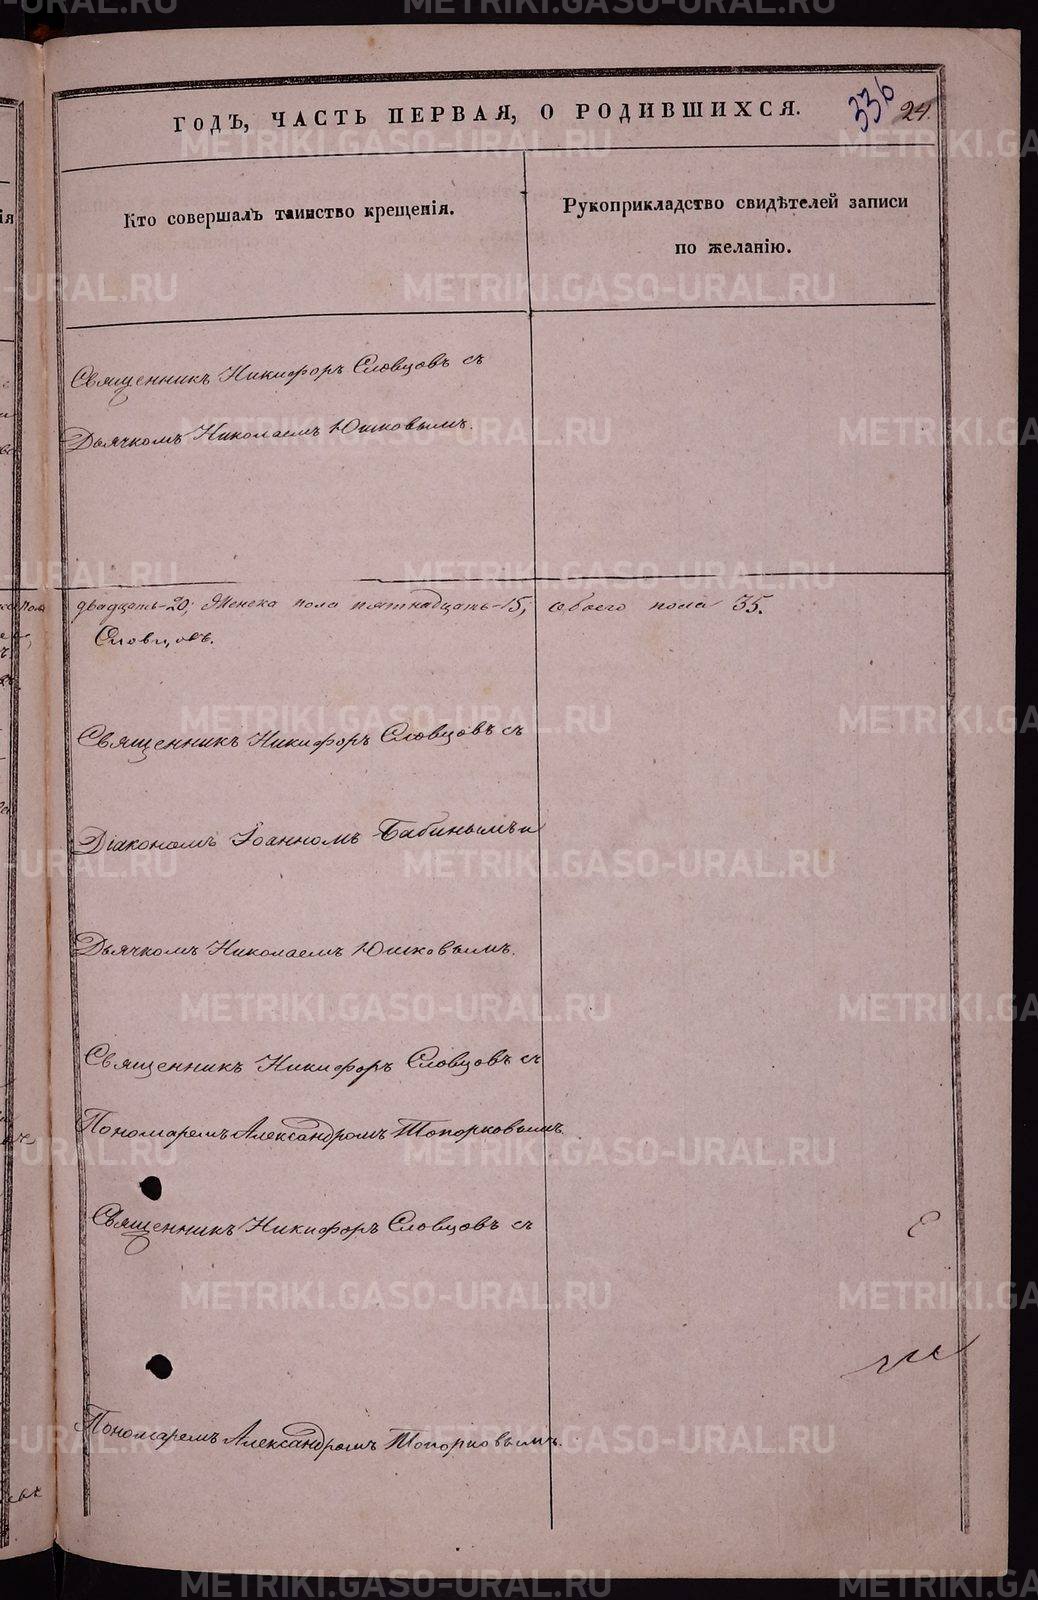 ГОДЪ, ЧАСТЬ ПЕРВАЯ, О РОДИВШИХСЯ.
336
24.
Кто совершалъ таинство крещенія.
Рукоприкладство свидѣтелей записи
по желанію.
Священникъ Никифоръ Словцовъ съ
Дьячкомъ Николаемъ Юшковымъ.
двадцать-20; Женска пола пятнадцать-15; обоего пола 35.
Словцовъ.
Священникъ Никифоръ Словцовъ съ
Діакономъ Іоанномъ Бабинымъ и
Дьячкомъ Николаемъ Юшковымъ.
Священникъ Никифоръ Словцовъ съ
Пономаремъ Александромъ Топорковымъ.
Священникъ Никифоръ Словцовъ съ
Пономаремъ Александромъ Топорковымъ.
METRIKI.GASO-URAL.RU